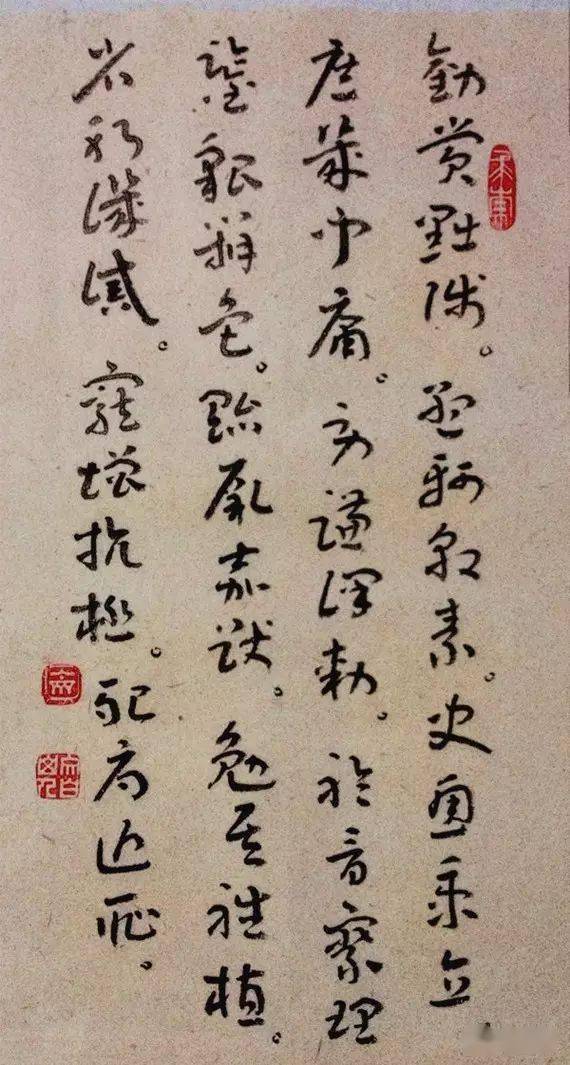 勸賞黜陟。孟軻敦素。史魚秉直
庶幾中庸。勞謙謹敕。聆音察理
鑒貌辨色。貽厥嘉猷。勉其祗植。
省躬譏誡。寵增抗極。殆辱近恥。